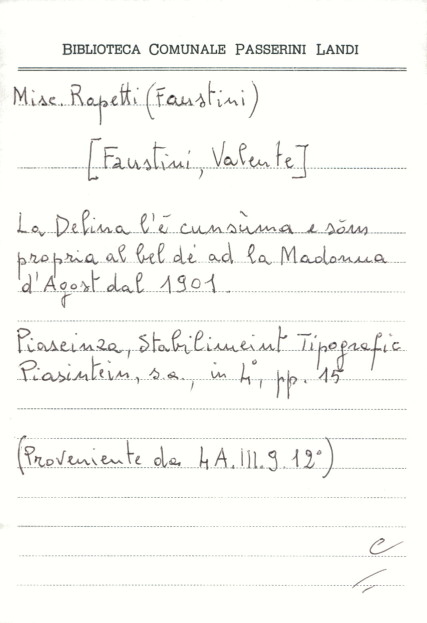 BIBLIOTECA COMUNALE PASSERINI LANDI
Misc. Rapetti (Faustini)
[Faustini, Valente]
La Delina l'è cunsùma e sôm
propria al bel dé ad la Madonna
d'Agost dal 1901.
Piaseinza, Stabilimeint Tipografic
Piasintein, s.a., in 4°, pp. 15
(Proveniente da 4 A.III.9.12°)